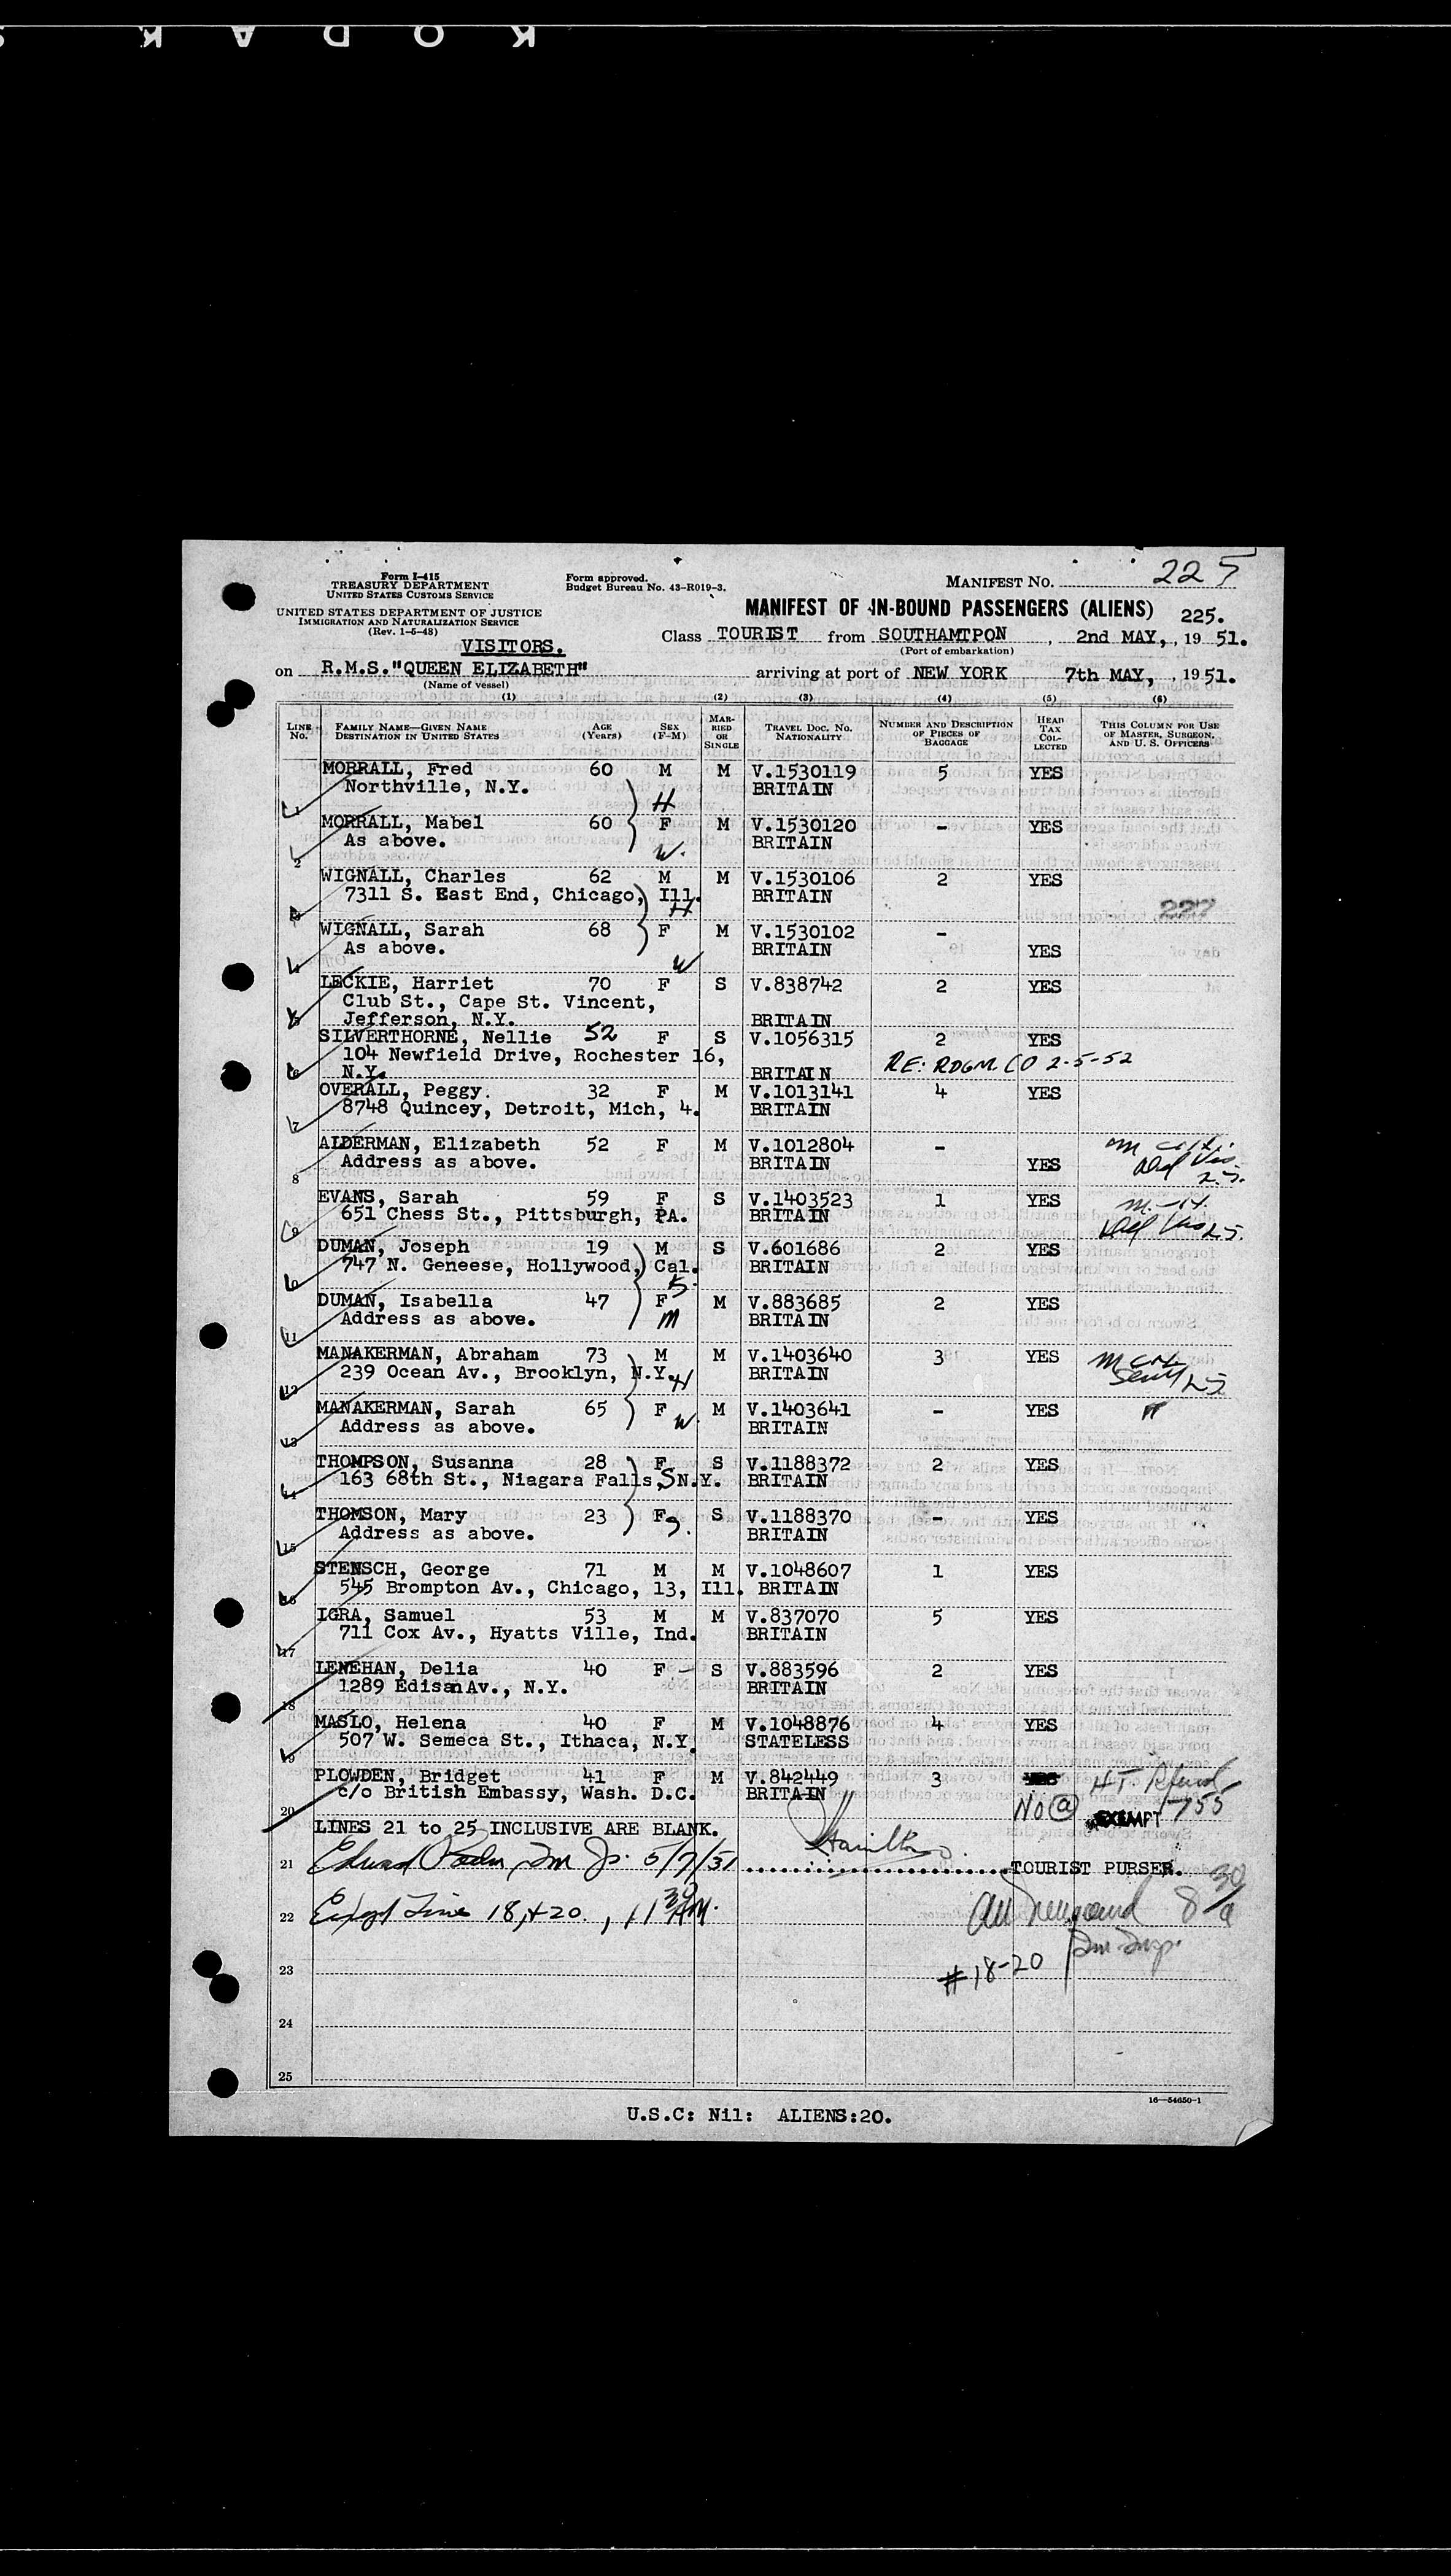 KODAK
Form I-415
TREASURY DEPARTMENT
UNITED STATES CUSTOMS SERVICE
Form approved.
Budget Bureau No. 43-R019-3.
MANIFEST NO. 225
UNITED STATES DEPARTMENT OF JUSTICE
IMMIGRATION AND NATURALIZATION SERVICE
(Rev. 1-5-48)
MANIFEST OF IN-BOUND PASSENGERS (ALIENS) 225.
VISITORS.
Class TOURIST from SOUTHAMTPON, 2nd MAY, 1951.
(Port of embarkation)
on R.M.S."QUEEN ELIZABETH" arriving at port of NEW YORK 7th MAY, 1951.
(Name of vessel)
(1) (2) (3) (4) (5) (6)
LINE No. FAMILY NAME—GIVEN NAME DESTINATION IN UNITED STATES AGE (Years) SEX (F-M) MARRIED OR SINGLE TRAVEL DOC. NO. NATIONALITY NUMBER AND DESCRIPTION OF PIECES OF BAGGAGE HEAD TAX COLLECTED THIS COLUMN FOR USE OF MASTER, SURGEON, AND U. S. OFFICERS
MORRALL, Fred 60 M M V.1530119 5 YES
Northville, N.Y. BRITAIN
1 H
MORRALL, Mabel 60 F M V.1530120 - YES
As above. BRITAIN
2 W.
WIGNALL, Charles 62 M M V.1530106 2 YES
7311 S. East End, Chicago, Ill. BRITAIN
3 H 227
WIGNALL, Sarah 68 F M V.1530102 -
As above. BRITAIN YES
4 W
LECKIE, Harriet 70 F S V.838742 2 YES
Club St., Cape St. Vincent,
5 Jefferson, N.Y. BRITAIN
SILVERTHORNE, Nellie 52 F S V.1056315 2 YES
104 Newfield Drive, Rochester 16, RE: RDGM CO 2-5-52
6 N.Y. BRITAIN
OVERALL, Peggy. 32 F M V.1013141 4 YES
8748 Quincey, Detroit, Mich, 4. BRITAIN
7
ALDERMAN, Elizabeth 52 F M V.1012804 -
Address as above. BRITAIN YES
8
EVANS, Sarah 59 F S V.1403523 1 YES
651 Chess St., Pittsburgh, PA. BRITAIN
9
DUMAN, Joseph 19 M S V.601686 2 YES
747 N. Geneese, Hollywood, Cal. BRITAIN
10 S.
DUMAN, Isabella 47 F M V.883685 2 YES
Address as above. M BRITAIN
11
MANAKERMAN, Abraham 73 M M V.1403640 3 YES
239 Ocean Av., Brooklyn, N.Y. H BRITAIN
12
MANAKERMAN, Sarah 65 F M V.1403641 - YES "
Address as above. W. BRITAIN
13
THOMPSON, Susanna 28 F S V.1188372 2 YES
163 68th St., Niagara Falls, S N.Y. BRITAIN
14
THOMSON, Mary 23 F S V.1188370 - YES
Address as above. S. BRITAIN
15
STENSCH, George 71 M M V.1048607 1 YES
16 545 Brompton Av., Chicago, 13, Ill. BRITAIN
IGRA, Samuel 53 M M V.837070 5 YES
711 Cox Av., Hyatts Ville, Ind. BRITAIN
17
LENEHAN, Delia 40 F - S V.883596 2 YES
1289 Edison Av., N.Y. BRITAIN
18
MASLO, Helena 40 F M V.1048876 4 YES
507 W. Semeca St., Ithaca, N.Y. STATELESS
19
PLOWDEN, Bridget 41 F M V.842449 3 YES H.T. Refund
c/o British Embassy, Wash. D.C. BRITAIN No @ EXEMPT 1755
20
LINES 21 to 25 INCLUSIVE ARE BLANK.
Hamilton
21 Edward 5/7/51 TOURIST PURSER.
22 Except Line 18, + 20, 11 30 AM. 8 30/a
Imm Insp.
23 #18-20
24
25
16—54650-1
U.S.C: Nil: ALIENS:20.